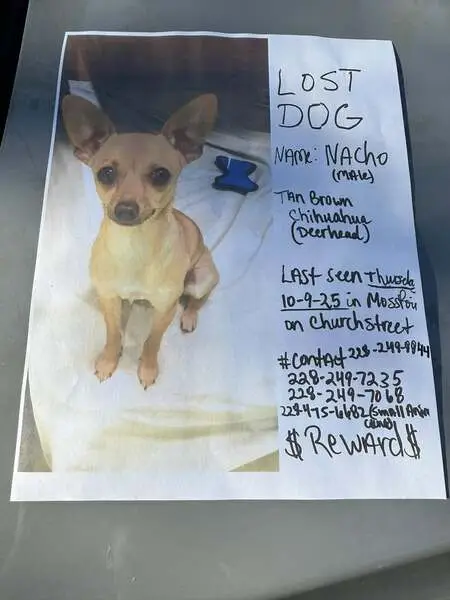 LOST
DOG
NAMe: NAcho
(MAle)
TAn Brown
Chihuahua
(Deerhead)
LAST seen Thursda
10-9-25 in Mosspoi
on Churchstreet
#Contact 228-249-8844
228-249-7235
228-249-7068
228-475-6682 (Small Anim
$ReWArd$